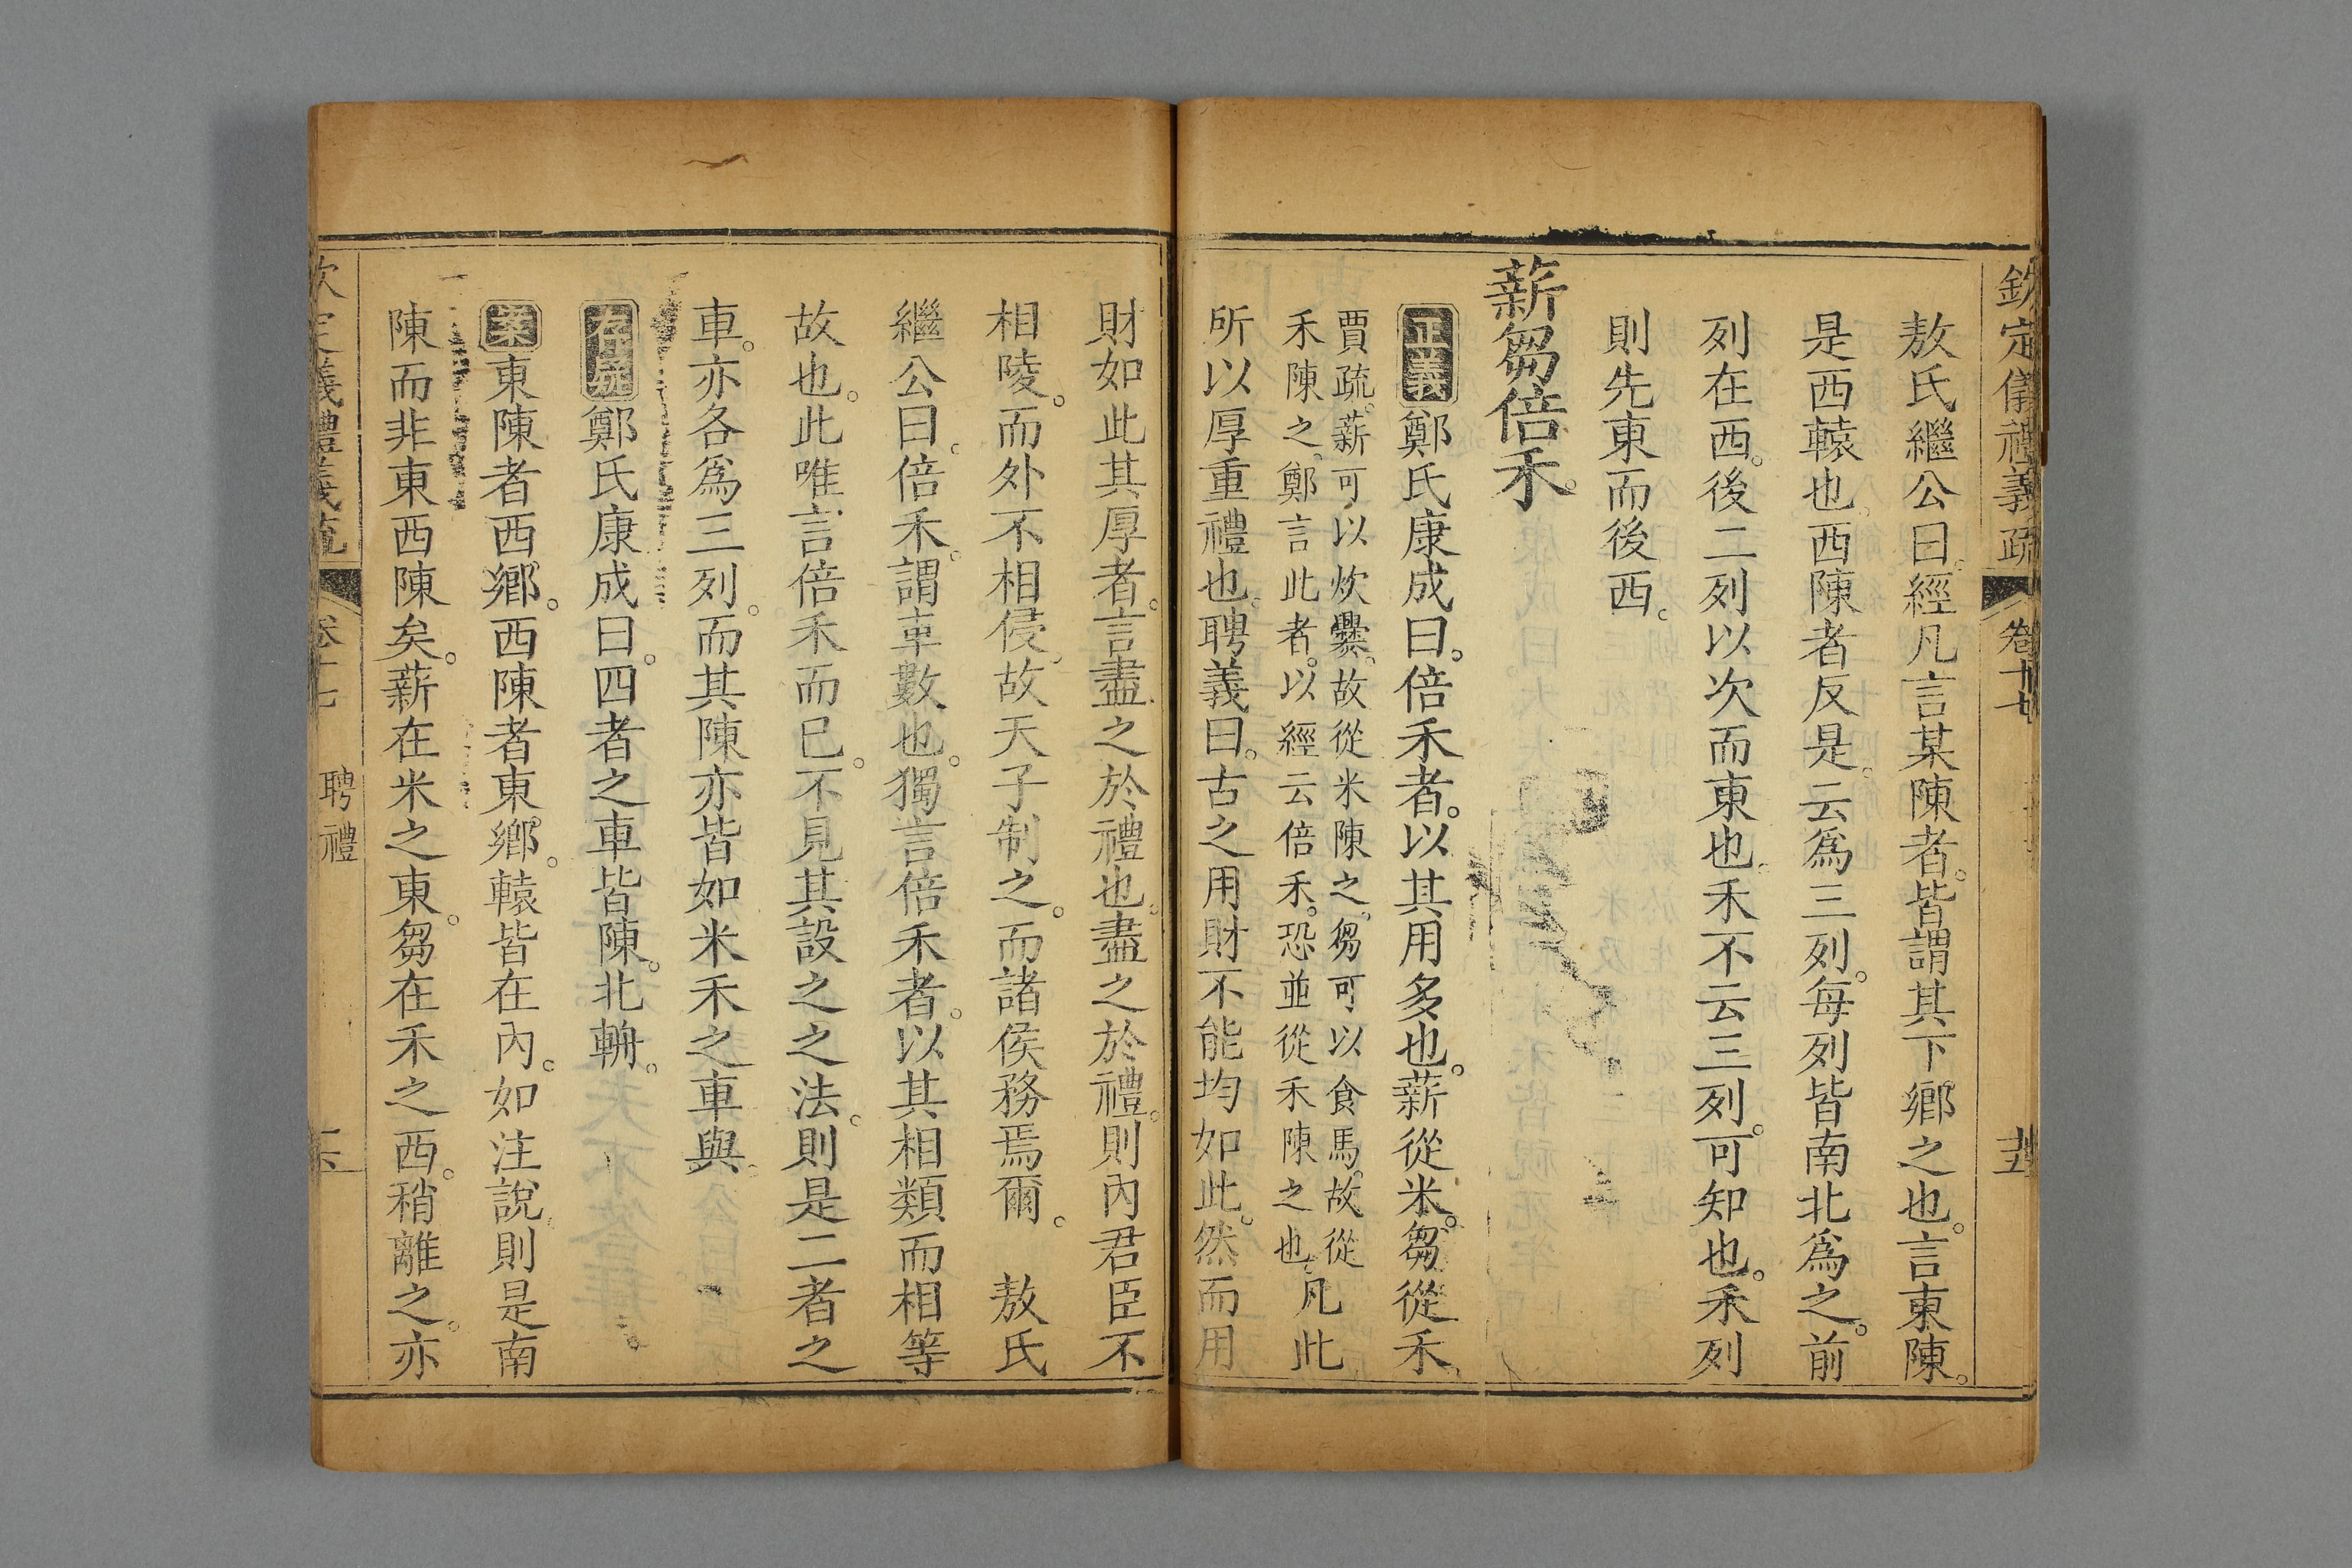 欽定儀禮義疏 卷十七
敖氏繼公曰。經凡言某陳者。皆謂其下鄉之也。言東陳。
是西轅也。西陳者反是。云爲三列。每列皆南北爲之。前
列在西。後二列以次而東也。禾不云三列。可知也。禾列
則先東而後西。
薪芻倍禾。
正義鄭氏康成曰。倍禾者。以其用多也。薪從米。芻從禾。
賈疏。薪可以炊爨。故從米陳之。芻可以食馬。故從
禾陳之。鄭言此者。以經云倍禾。恐並從禾陳之也。凡此
所以厚重禮也。聘義曰。古之用財不能均如此。然而用
財如此其厚者。言盡之於禮也。盡之於禮。則內君臣不
相陵。而外不相侵。故天子制之。而諸侯務焉爾。 敖氏
繼公曰。倍禾。謂車數也。獨言倍禾者。以其相類而相等
故也。此唯言倍禾而已。不見其設之之法。則是二者之
車。亦各爲三列。而其陳亦皆如米禾之車與。
存疑鄭氏康成曰。四者之車皆陳。北輈。
案東陳者西鄉。西陳者東鄉。轅皆在內。如注說。則是南
陳而非東西陳矣。薪在米之東。芻在禾之西。稍離之。亦
欽定儀禮義疏 卷十七 聘禮